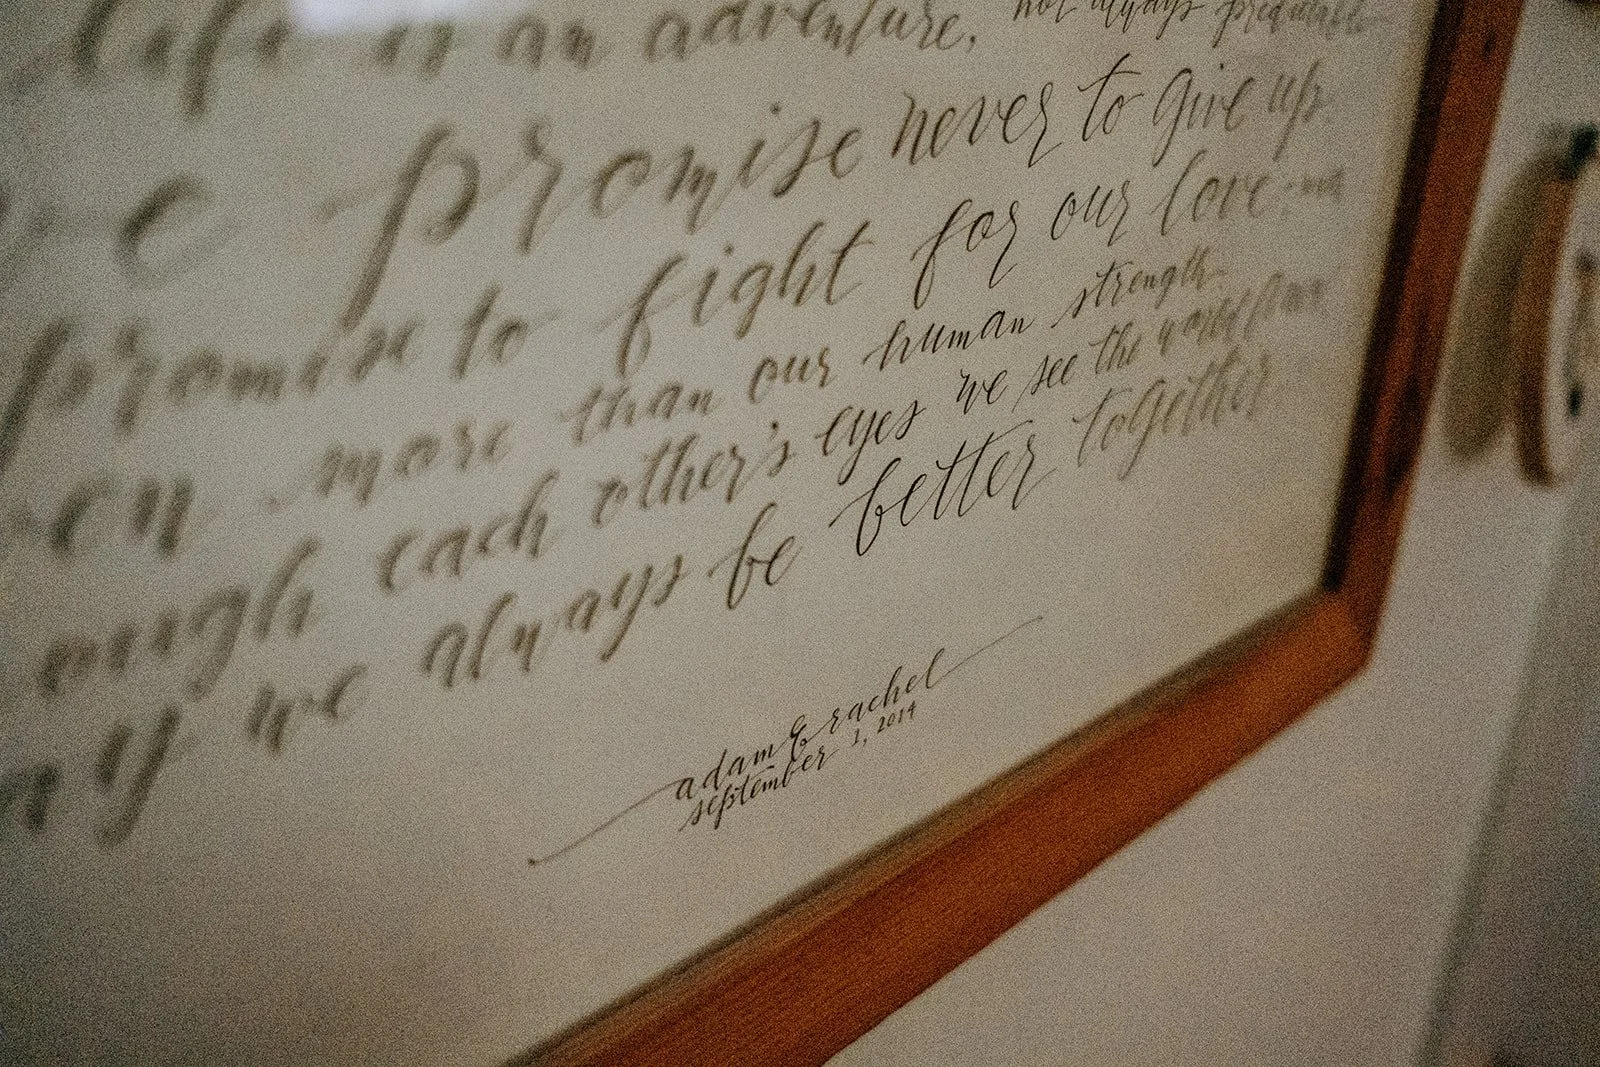 life is an adventure, not always predictable
we promise never to give up
promise to fight for our love
on more than our human strength.
ough each other's eyes we see the world
ay we always be better together.
adam & rachel
september 1, 2014